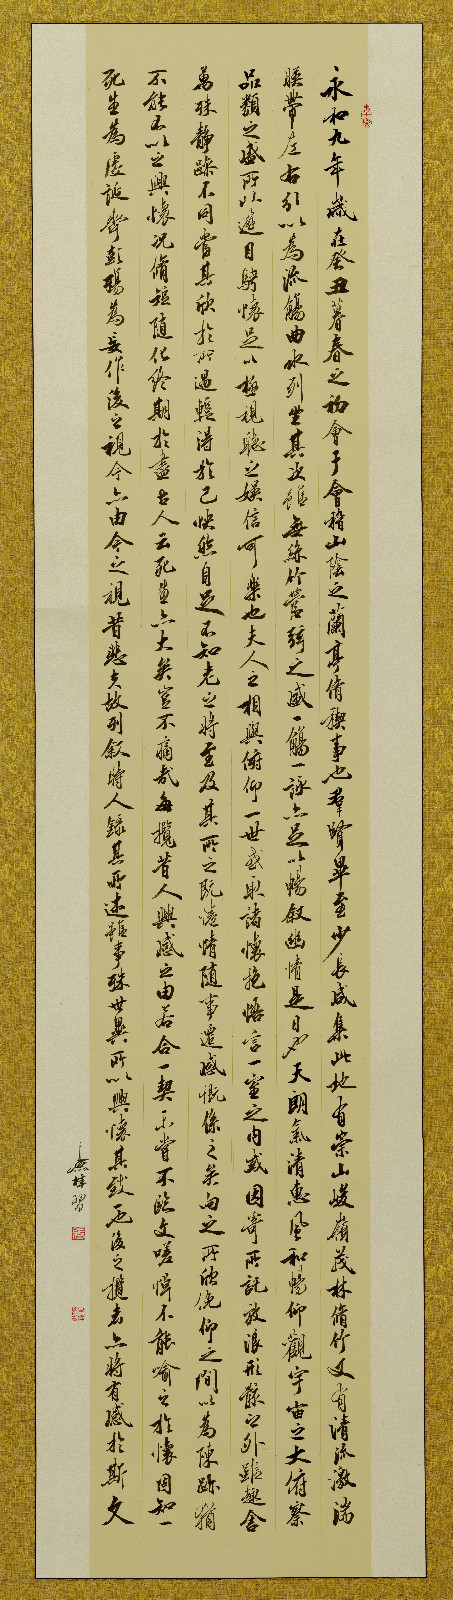 永和九年歲在癸丑暮春之初會于會稽山陰之蘭亭脩稧事也羣賢畢至少長咸集此地有崇山峻嶺茂林脩竹又有清流激湍
暎帶左右引以為流觴曲水列坐其次雖無絲竹管弦之盛一觴一詠亦足以暢敘幽情是日也天朗氣清惠風和暢仰觀宇宙之大俯察
品類之盛所以遊目騁懷足以極視聽之娛信可樂也夫人之相與俯仰一世或取諸懷抱悟言一室之內或因寄所託放浪形骸之外雖趣舍
萬殊靜躁不同當其欣於所遇輒得於己怏然自足不知老之將至及其所之既惓情隨事遷感慨係之矣向之所欣俛仰之間以為陳跡猶
不能不以之興懷況脩短隨化終期於盡古人云死生亦大矣豈不痛哉每攬昔人興感之由若合一契未嘗不臨文嗟悼不能喻之於懷固知一
死生為虛誕齊彭殤為妄作後之視今亦由今之視昔悲夫故列敘時人錄其所述雖事殊世異所以興懷其致一也後之攬者亦將有感於斯文
習